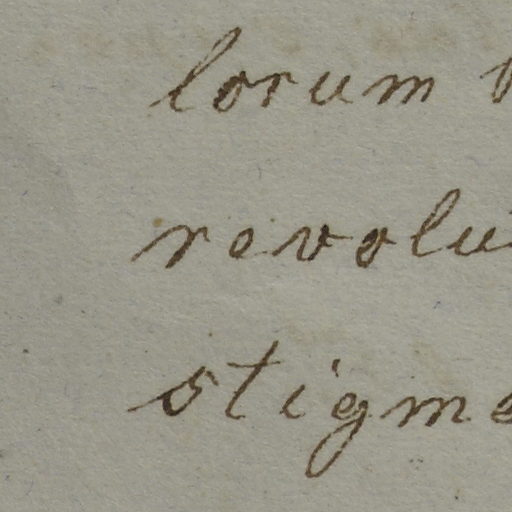 lorum
revolu
stigme